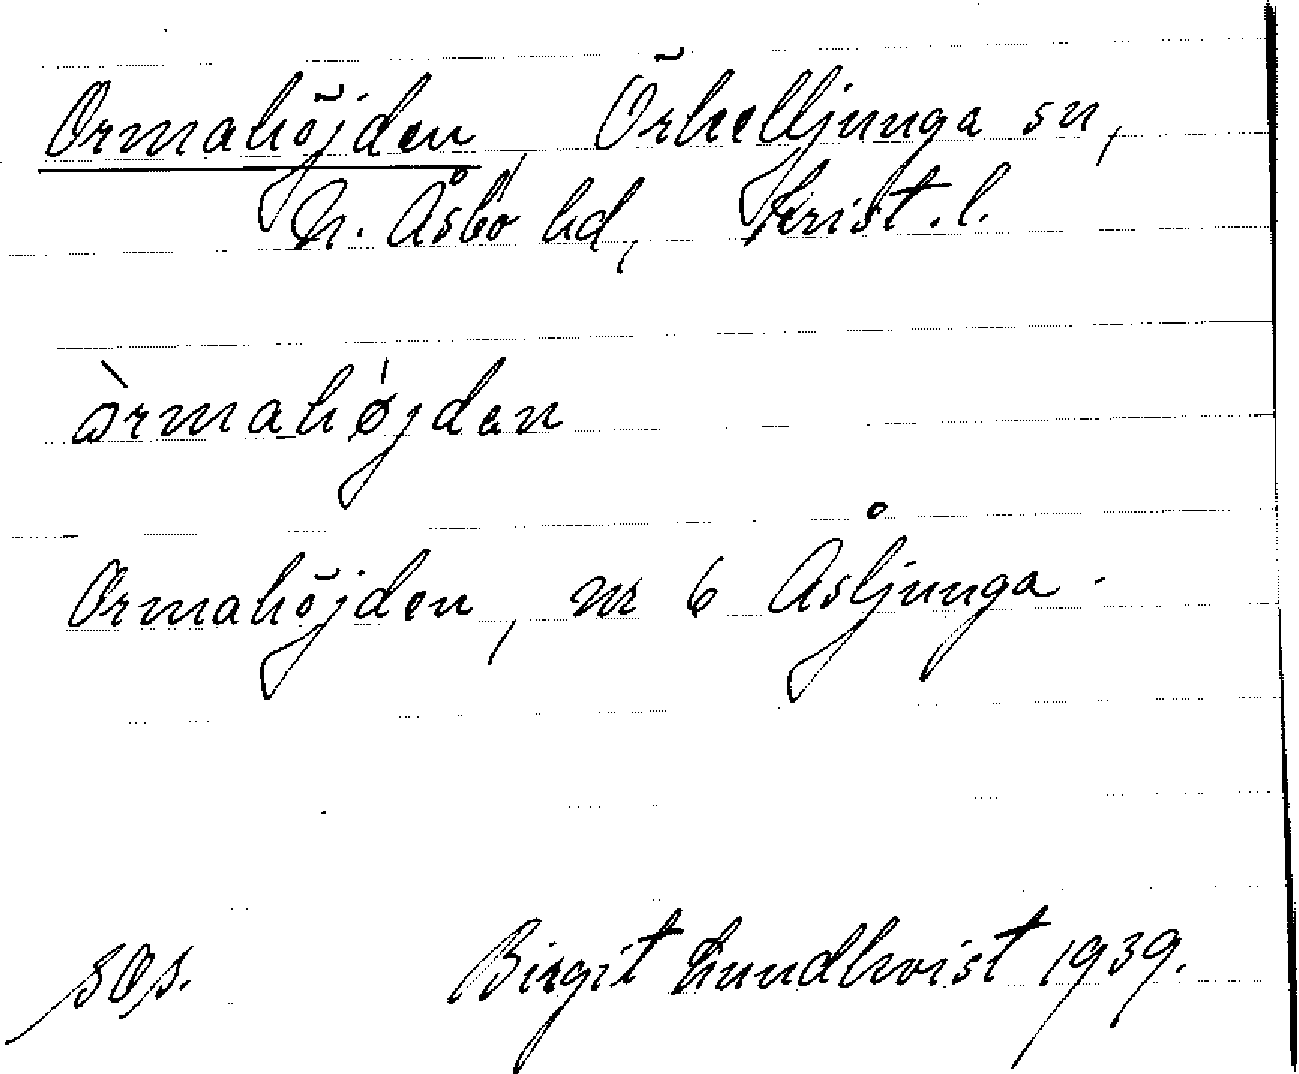 Ormahöjden, Örkelljunga sn,
N. Åsbo hd, Krist. l.
òrmahø̍jden
Ormahöjden, nr 6 Åsljunga.
sOs. Birgit Lundkvist 1939.